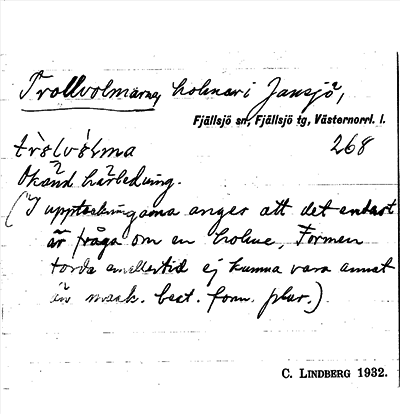 Trollvolmarna, holmar i Jansjö,
Fjällsjö sn, Fjällsjö tg, Västernorrl. l.
268
Okänd härledning.
(I uppteckningarna anges att det endast
är fråga om en holme. Formen
torde emellertid ej kunna vara annat
än mask. best. form plur.)
C. LINDBERG 1932.